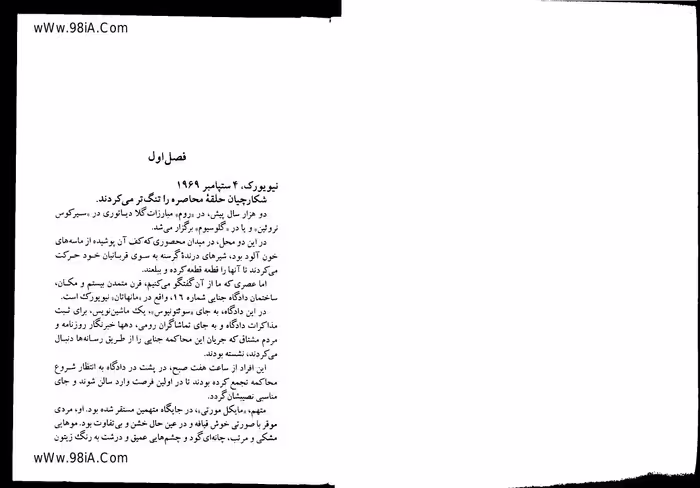 wWw.98iA.Com
فصل اول
نیویورک، ۴ سپتامبر ۱۹۶۹
شکارچیان حلقهٔ محاصره را تنگ‌تر می‌کردند.
دو هزار سال پیش، در «روم» مبارزات گلادیاتوری در «سیرکوس
نروئین» و یا در «گلوسیوم» برگزار می‌شد.
در این دو محل، در میدان محصوری که کف آن پوشیده از ماسه‌های
خون آلود بود، شیرهای درندهٔ گرسنه به سوی قربانیان خود حرکت
می‌کردند تا آنها را قطعه قطعه کرده و ببلعند.
اما عصری که ما از آن گفتگو می‌کنیم، قرن متمدن بیستم و مکان،
ساختمان دادگاه جنایی شماره ۱۶، واقع در «مانهاتان» نیویورک است.
در این دادگاه، به جای «سوئتونیوس»، یک ماشین‌نویس، برای ثبت
مذاکرات دادگاه و به جای تماشاگران رومی، دهها خبرنگار روزنامه و
مردم مشتاق که جریان این محاکمه جنایی را از طریق رسانه‌ها دنبال
می‌کردند، نشسته بودند.
این افراد از ساعت هفت صبح، در پشت در دادگاه به انتظار شروع
محاکمه تجمع کرده بودند تا در اولین فرصت وارد سالن شوند و جای
مناسبی نصیبشان گردد.
متهم، «مایکل مورتی»، در جایگاه متهمین مستقر شده بود. او، مردی
موقر با صورتی خوش قیافه و در عین حال خشن و بی‌تفاوت بود. موهایی
مشکی و مرتب، چانه‌ای گود و چشم‌هایی عمیق و درشت به رنگ زیتون
wWw.98iA.Com